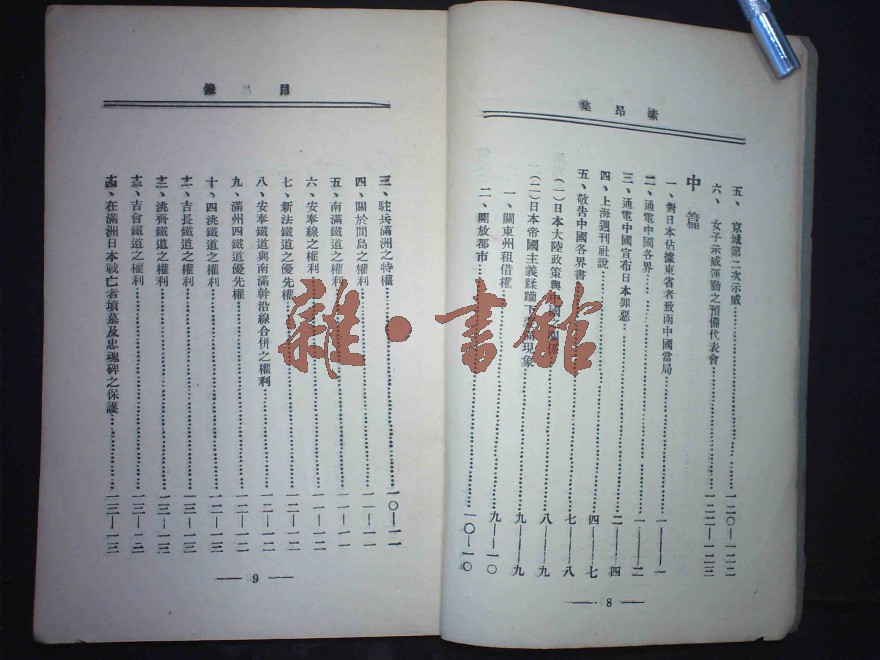 素昂集
五、京城第二次示威……一二〇—一二二
六、女子示威運動之預備代表會……一二二—一二三
中篇
一、對日本佔據東省者致函中國當局……一—一
二、通電中國各界……一—二
三、通電中國宣布日本罪惡……二—四
四、上海週刊社說……四—七
五、敬告中國各界書……七—八
(一)日本大陸政策與中國之關係……八—九
(二)日本帝國主義蹂躪下 現象……九—九
一、關東州租借權……九—一〇
二、開放都市……一〇—一〇
8
目錄
三、駐兵滿洲之特權……一〇—一一
四、關於間島之權利……一一—一一
五、南滿鐵道之權利……一一—一二
六、安奉線之權利……一一—一二
七、新法鐵道之優先權……一二—一二
八、安奉鐵道與南滿幹沿線合併之權利……一二—一二
九、滿州四鐵道優先權……一二—一二
十、四洮鐵道之權利……一二—一三
十一、吉長鐵道之權利……一三—一三
十二、洮齊鐵道之權利……一三—一三
十三、吉會鐵道之權利……一三—一三
十四、在滿洲日本戰亡者墳墓及忠魂碑之保護……一三—一三
9
雜·書館